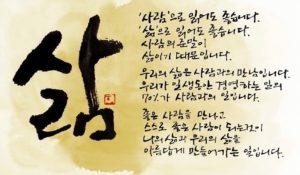 삶
'사람'으로 읽어도 좋습니다.
'삶'으로 읽어도 좋습니다.
사람의 준말이
삶이기 때문입니다.
우리의 삶은 사람과의 만남입니다.
우리가 일생동안 경영하는 일의
70%가 사람과의 일입니다.
좋은 사람을 만나고
스스로 좋은 사람이 되는것이
나의 삶과 우리의 삶을
아름답게 만들어가는 일입니다.